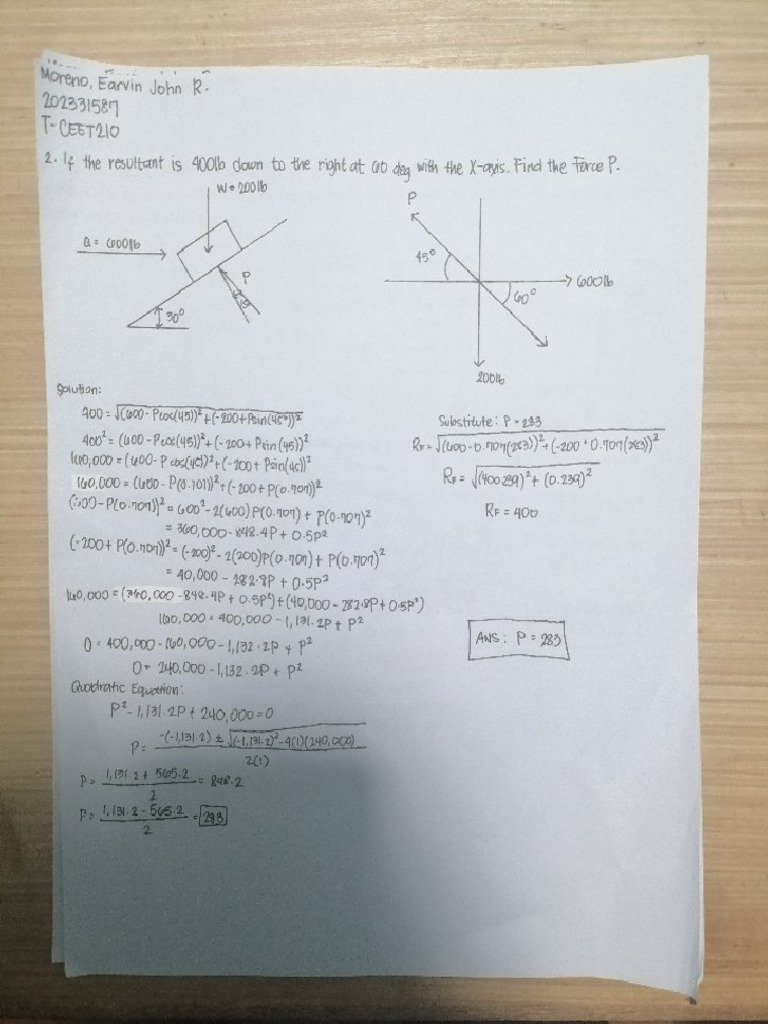 Moreno, Earvin John R.
202331587
T-CEET210
2. If the resultant is 400lb down to the right at 60 deg with the X-axis. Find the Force P.
W = 200lb
Q = 600lb
P
30°
P
45°
600lb
60°
200lb
Solution:
400 = √(600 - Pcos(45))² + (-200 + Psin(45))²
400² = (600 - Pcos(45))² + (-200 + Psin(45))²
160,000 = (600 - P cos(45))² + (-200 + Psin(45))²
160,000 = (600 - P(0.707))² + (-200 + P(0.707))²
(600 - P(0.707))² = 600² - 2(600)P(0.707) + P(0.707)²
= 360,000 - 848.4P + 0.5P²
(-200 + P(0.707))² = (-200)² - 2(200)P(0.707) + P(0.707)²
= 40,000 - 282.8P + 0.5P²
160,000 = (360,000 - 848.4P + 0.5P²) + (40,000 - 282.8P + 0.5P²)
160,000 = 400,000 - 1,131.2P + P²
0 = 400,000 - 160,000 - 1,132.2P + P²
0 = 240,000 - 1,132.2P + P²
Quadratic Equation:
P² - 1,131.2P + 240,000 = 0
P = -(-1,131.2) ± √(-1,131.2)² - 4(1)(240,000)
2(1)
P = 1,131.2 + 565.2 = 848.2
2
P = 1,131.2 - 565.2 = 283
2
Substitute: P = 283
RF = √(600 - 0.707(283))² + (-200 + 0.707(283))²
RF = √(400.239)² + (0.239)²
RF = 400
ANS: P = 283